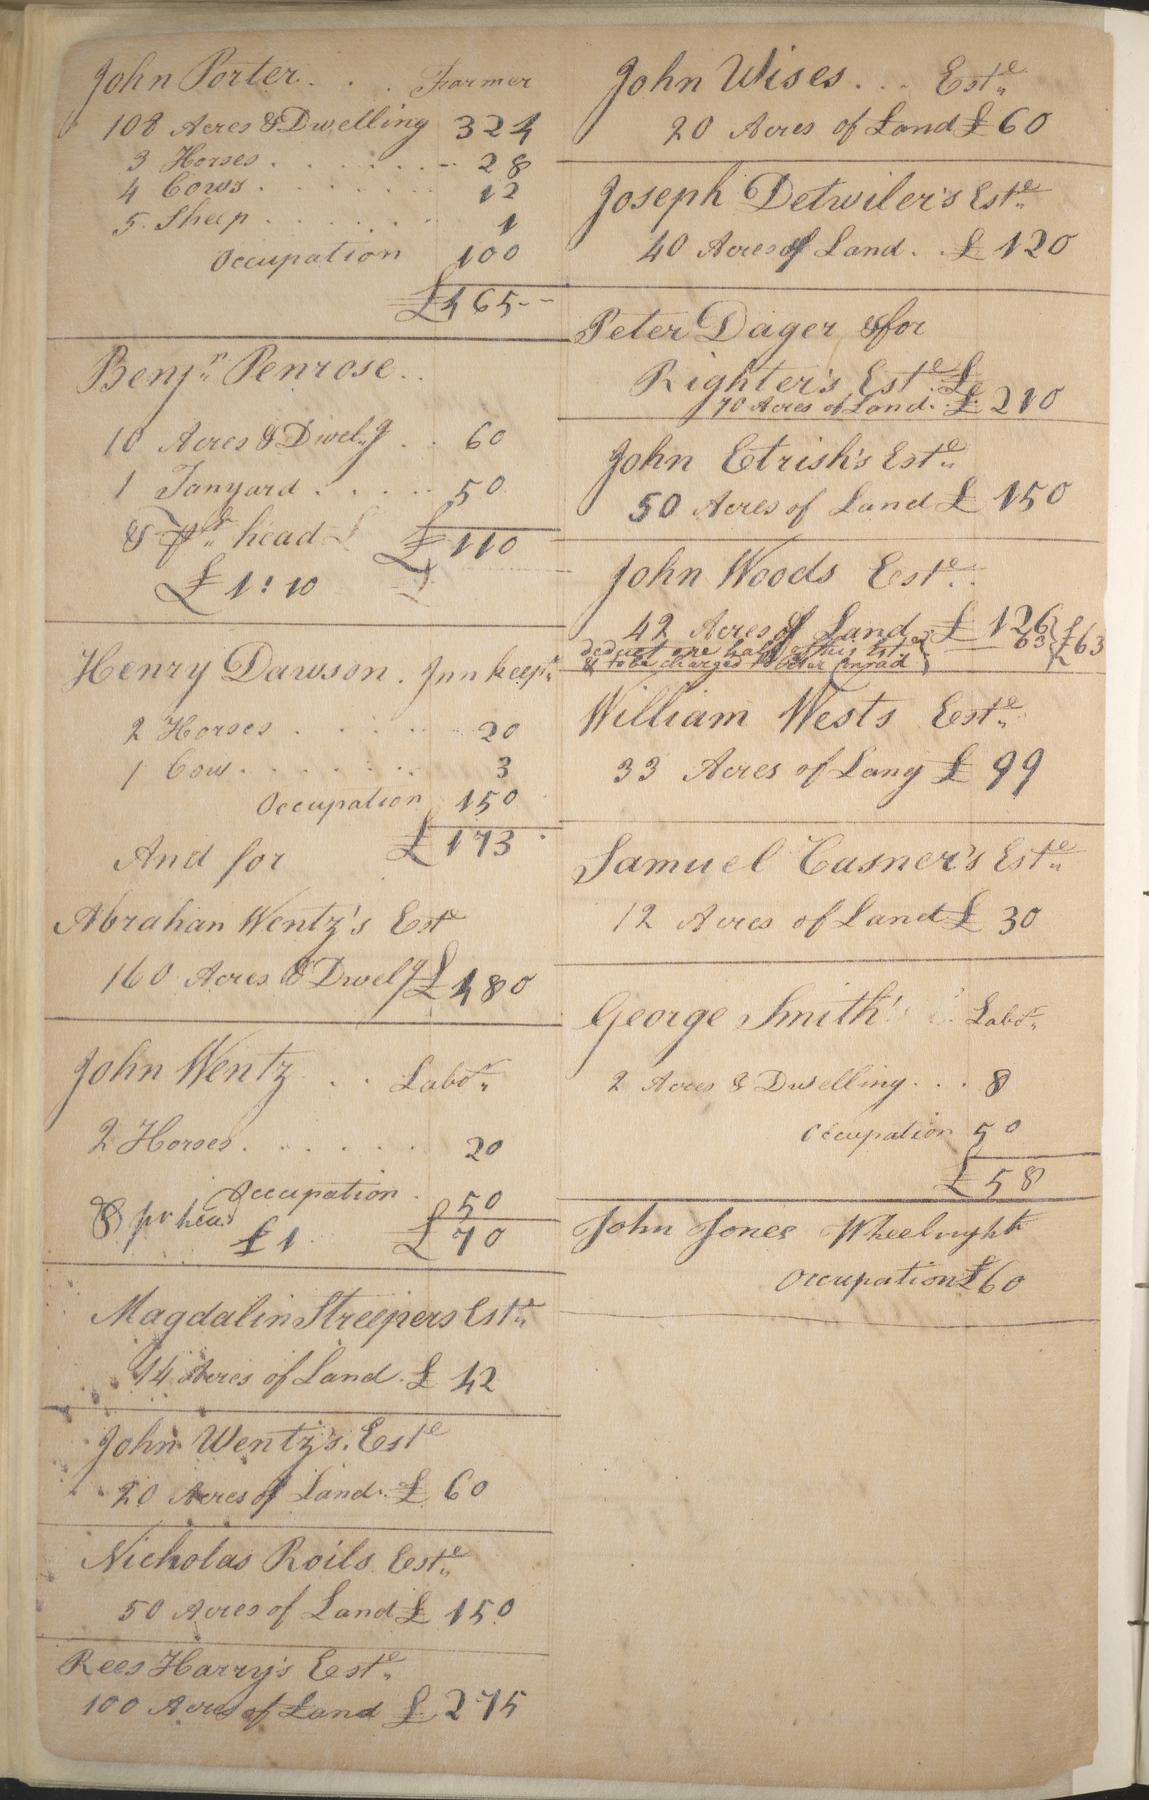 John Porter . . . Farmer
108 Acres & Dwelling 324
3 Horses . . . . . . 28
4 Cows . . . . . . 12
5 Sheep . . . . . . 1
Occupation 100
£465--
Benjn Penrose . .
10 Acres & Dwelg . . 60
1 Tanyard . . . . . 50
& pr head £110
£1:10
Henry Dawson . Innkeepr
2 Horses . . . . . 20
1 Cow . . . . . . 3
Occupation 150
£173
And for
Abrahan Wentz's Est
160 Acres & Dwelg £480
John Wentz . . Labor
2 Horses . . . . . . 20
Occupation . 50
& pr head £1 £70
Magdalin Streepers Este
14 Acres of Land . £ 42
John Wentz's . Este
20 Acres of Land . £ 60
Nicholas Roils Este
50 Acres of Land £ 150
Rees Harry's Este
100 Acres of Land £ 275
John Wises . . . Este
20 Acres of Land £ 60
Joseph Detwiler's Este
40 Acres of Land . . £ 120
Peter Dager & for
Righter's Este £
70 Acres of Land . £ 210
John Etrish's Este
50 Acres of Land £ 150
John Woods Este . .
42 Acres of Land £ 126
deduct one half of this Este 63 £63
& to be charged to Peter Conrad
William Wests Este
33 Acres of Lang £ 99
Samuel Cusner's Este
12 Acres of Land £ 30
George Smith' Labor
2 Acres & Dwelling . . . 8
Occupation 50
£58
John Jones Wheelright
Occupation £60